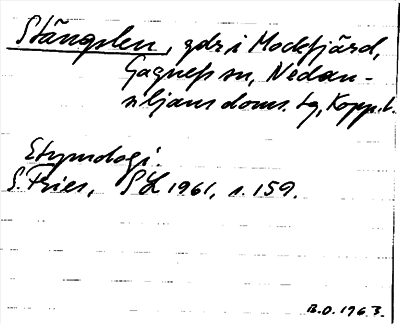 Stängslen, gdr i Mockfjärd,
Gagnefs sn, Nedan-
siljans doms. tg, Kopp. l.
Etymologi.
S. Fries, SL 1961, s. 159.
B.O. 1963.